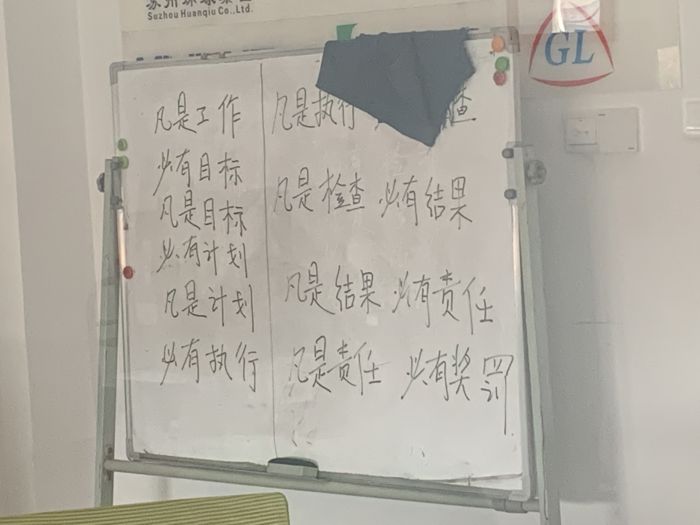 Suzhou Huanqiu Co.,Ltd.
GL
凡是工作
必有目标
凡是目标
必有计划
凡是计划
必有执行
凡是执行 查
凡是检查 必有结果
凡是结果 必有责任
凡是责任 必有奖罚